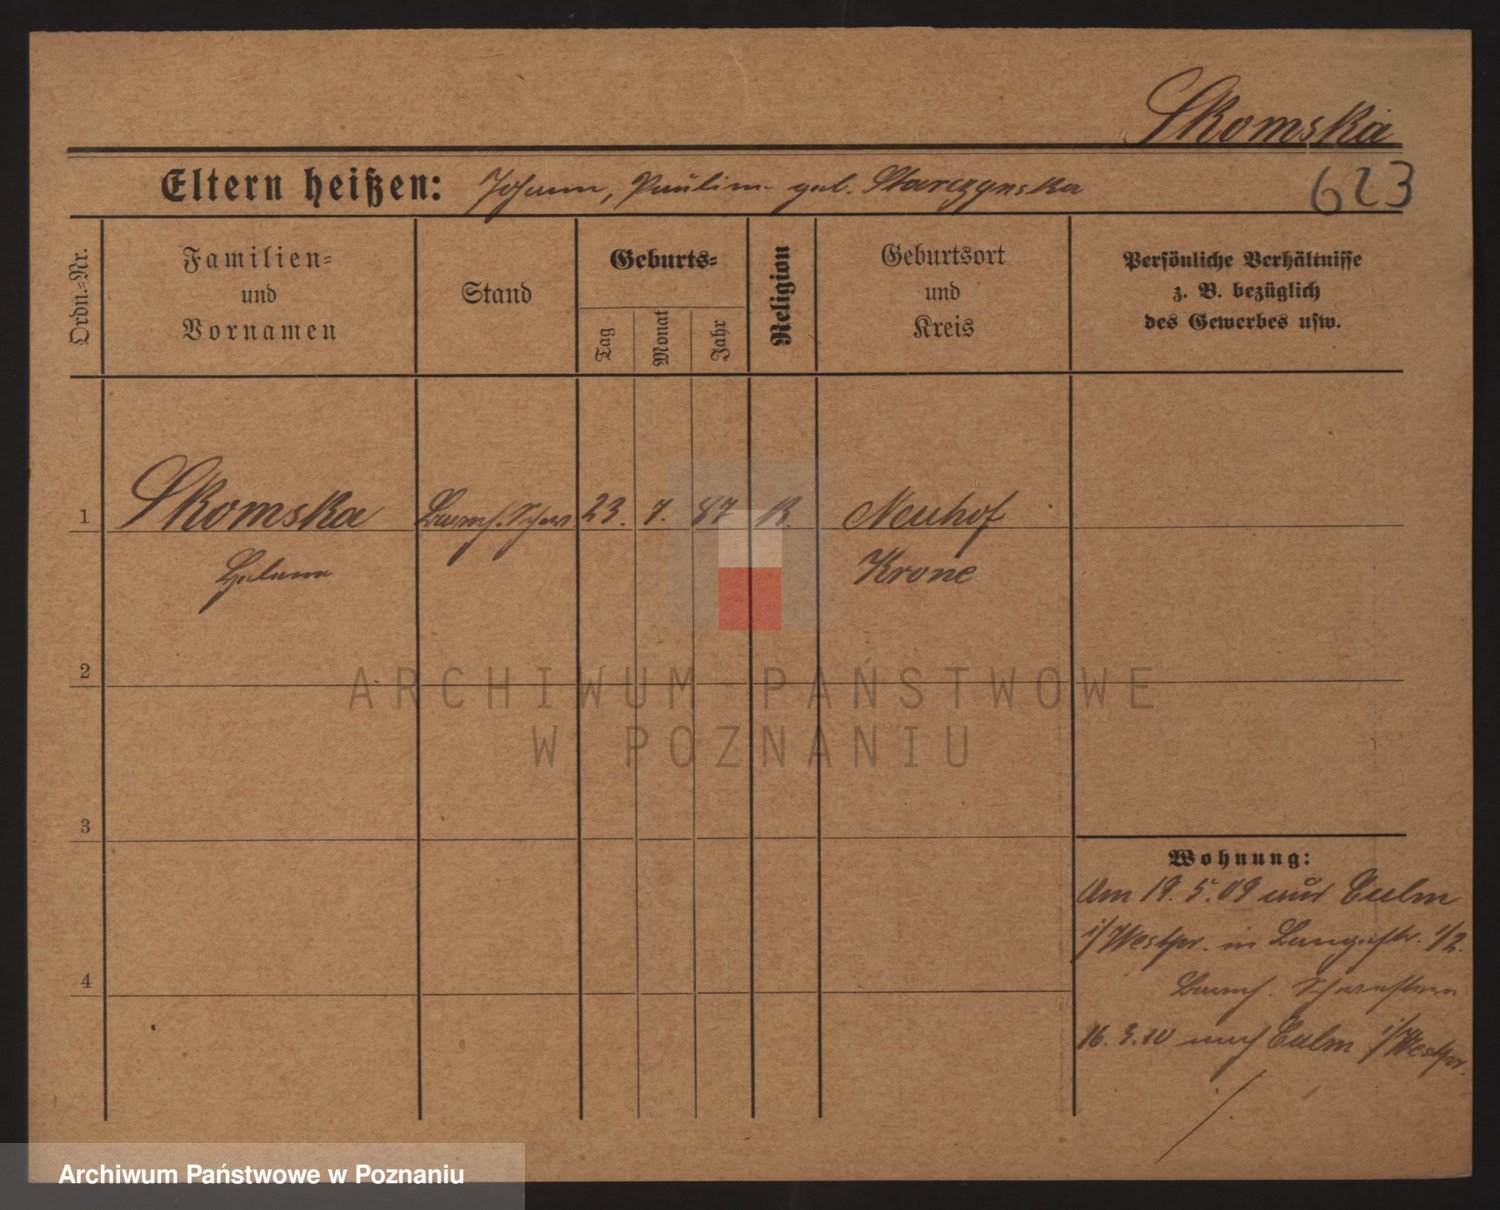 Skomska
Eltern heißen: Johann, Paulina geb. Starczynska
623
Ordn.=Nr.
Familien=
und
Vornamen
Stand
Geburts=
Tag
Monat
Jahr
Religion
Geburtsort
und
Kreis
Persönliche Verhältnisse
z. B. bezüglich
des Gewerbes usw.
1 Skomska 23. 7. 87 K. Neuhof
Helena Krone
2
3
4
Wohnung:
Am 19. 5. 09 aus Culm
i/Westpr. in Langestr. 1/2.
16. 3. 10 nach Culm i/Westpr.
ARCHIWUM PAŃSTWOWE
W POZNANIU
Archiwum Państwowe w Poznaniu